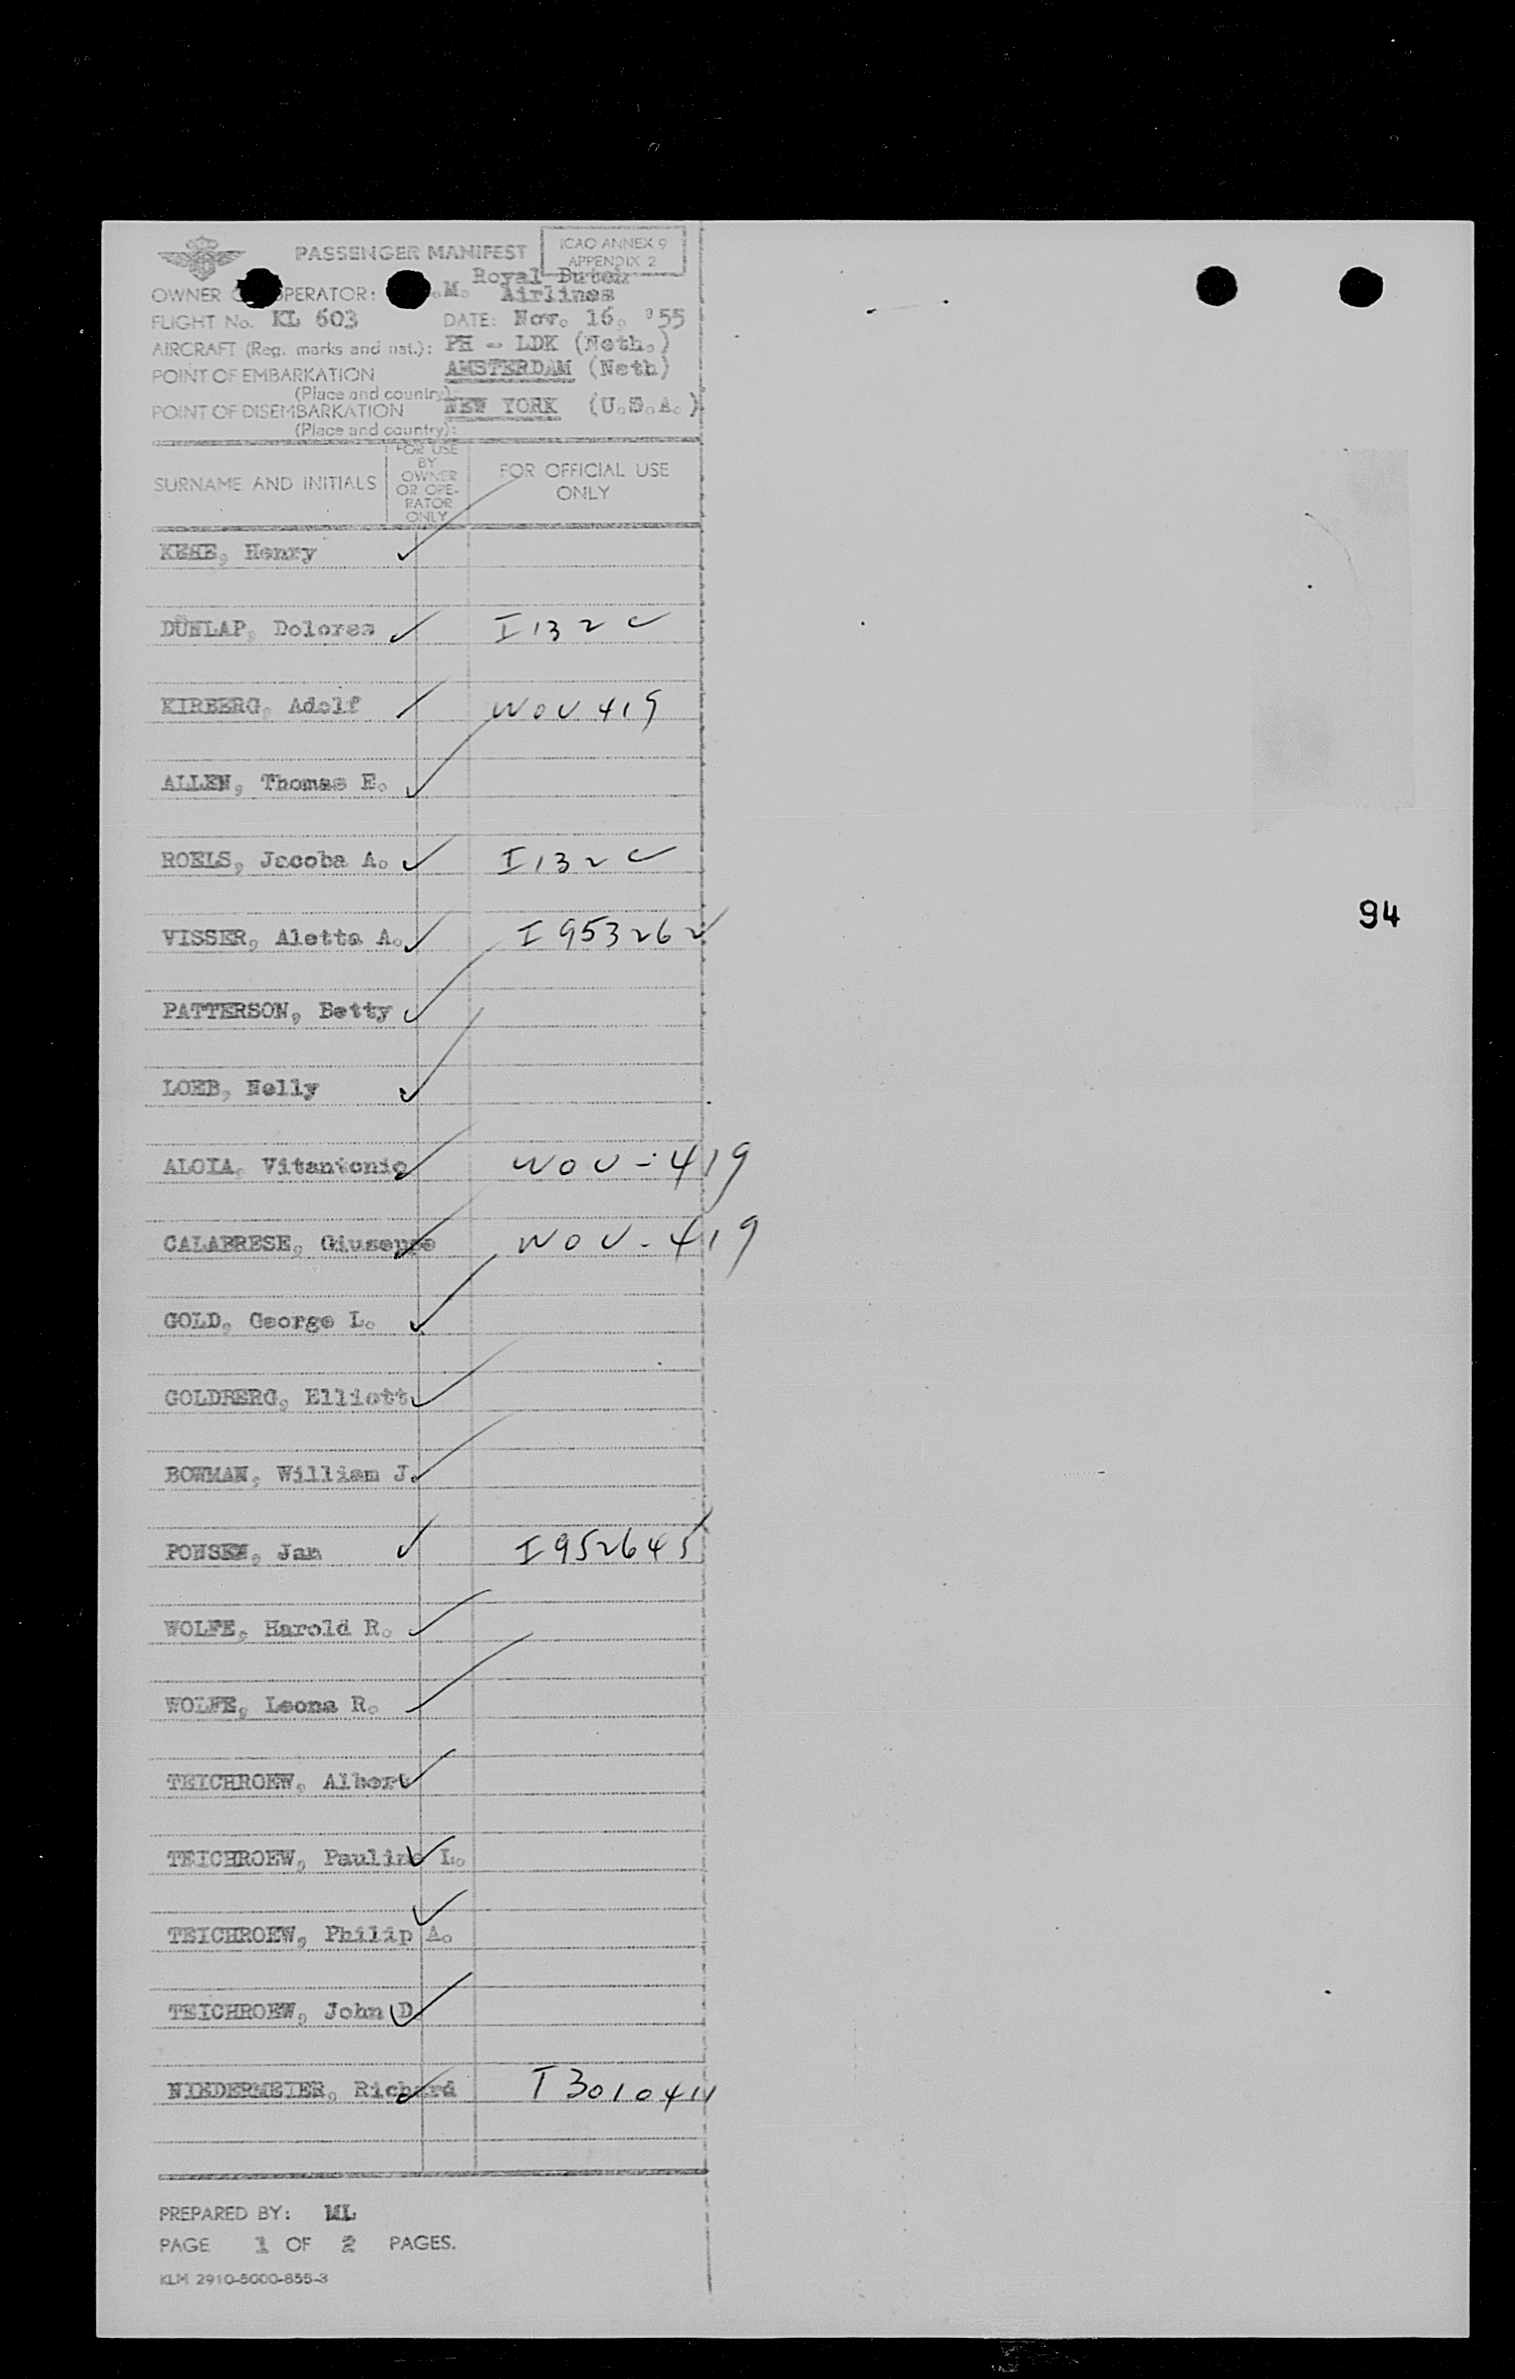 PASSENGER MANIFEST
ICAO ANNEX 9
APPENDIX 2
OWNER OPERATOR: .M. Royal Dutch
Airlines
FLIGHT No. KL 603 DATE: Nov. 16, '55
AIRCRAFT (Reg. marks and nat.): PH - LDK (Neth.)
POINT OF EMBARKATION AMSTERDAM (Neth)
(Place and country):
POINT OF DISEMBARKATION NEW YORK (U.S.A.)
(Place and country):
SURNAME AND INITIALS
FOR USE
BY
OWNER
OR OPE-
RATOR
ONLY
FOR OFFICIAL USE
ONLY
, Henry
DUNLAP, Dolores I 132 C
KIRBERG, Adolf WOV 419
ALLEN, Thomas E.
ROELS, Jacoba A. I 132 C
VISSER, Aletta A. I 953262
PATTERSON, Betty
LOEB, Nelly
ALOIA, Vitantonio WOV - 419
CALABRESE, Giuseppe WOV - 419
GOLD, George L.
GOLDBERG, Elliott
BOWMAN, William J.
PONSEN, Jan I 952645
WOLFE, Harold R.
WOLFE, Leona R.
TEICHROEW, Albert
TEICHROEW, Pauline L.
TEICHROEW, Philip A.
TEICHROEW, John D
NIEDERMEIER, Richard
94
PREPARED BY: ML
PAGE 1 OF 2 PAGES.
KLM 2910-5000-855-3